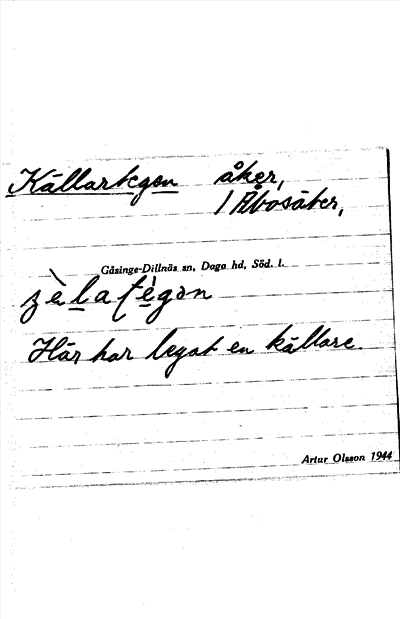 Källartegen åker,
1 Åbosäter,
Gåsinge-Dillnäs sn, Daga hd, Söd. l.
Här har legat en källare.
Artur Olsson 1944